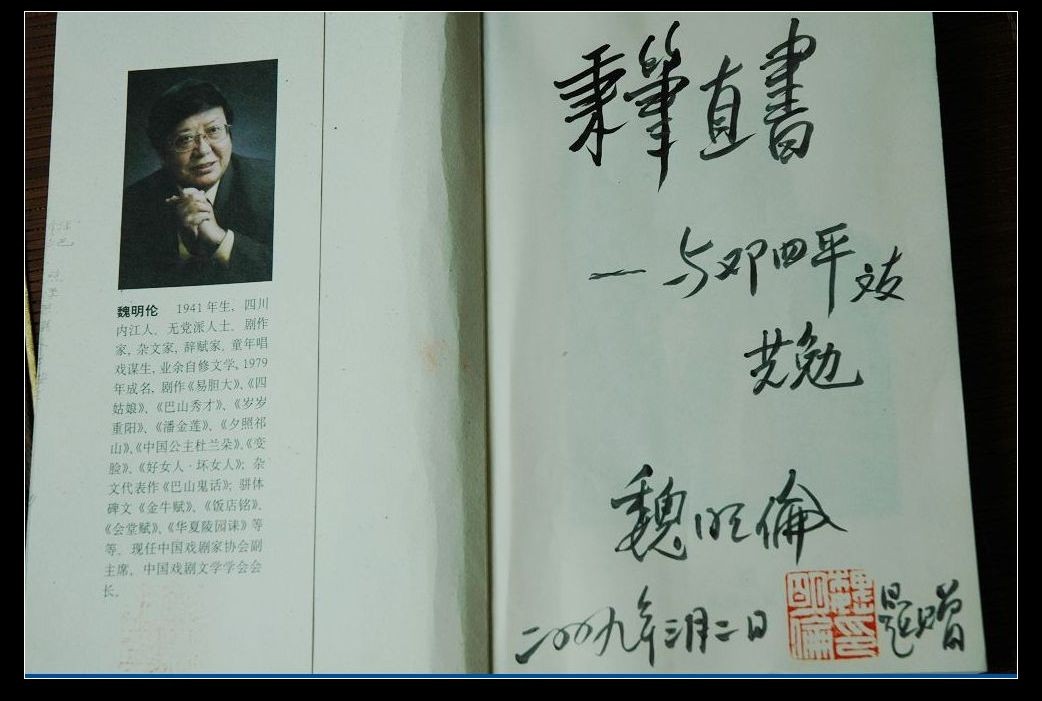 魏明伦 1941年生，四川
内江人，无党派人士，剧作
家，杂文家，辞赋家，童年唱
戏谋生，业余自修文学，1979
年成名，剧作《易胆大》、《四
姑娘》、《巴山秀才》、《岁岁
重阳》、《潘金莲》、《夕照祁
山》、《中国公主杜兰朵》、《变
脸》、《好女人·坏女人》；杂
文代表作《巴山鬼话》；骈体
碑文《金牛赋》、《饭店铭》、
《会堂赋》、《华夏陵园诔》等
等。现任中国戏剧家协会副
主席，中国戏剧文学学会会
长。
秉筆直書
—与邓四平文友
共勉
魏明倫
二00九年三月二日
魏明倫印
题赠